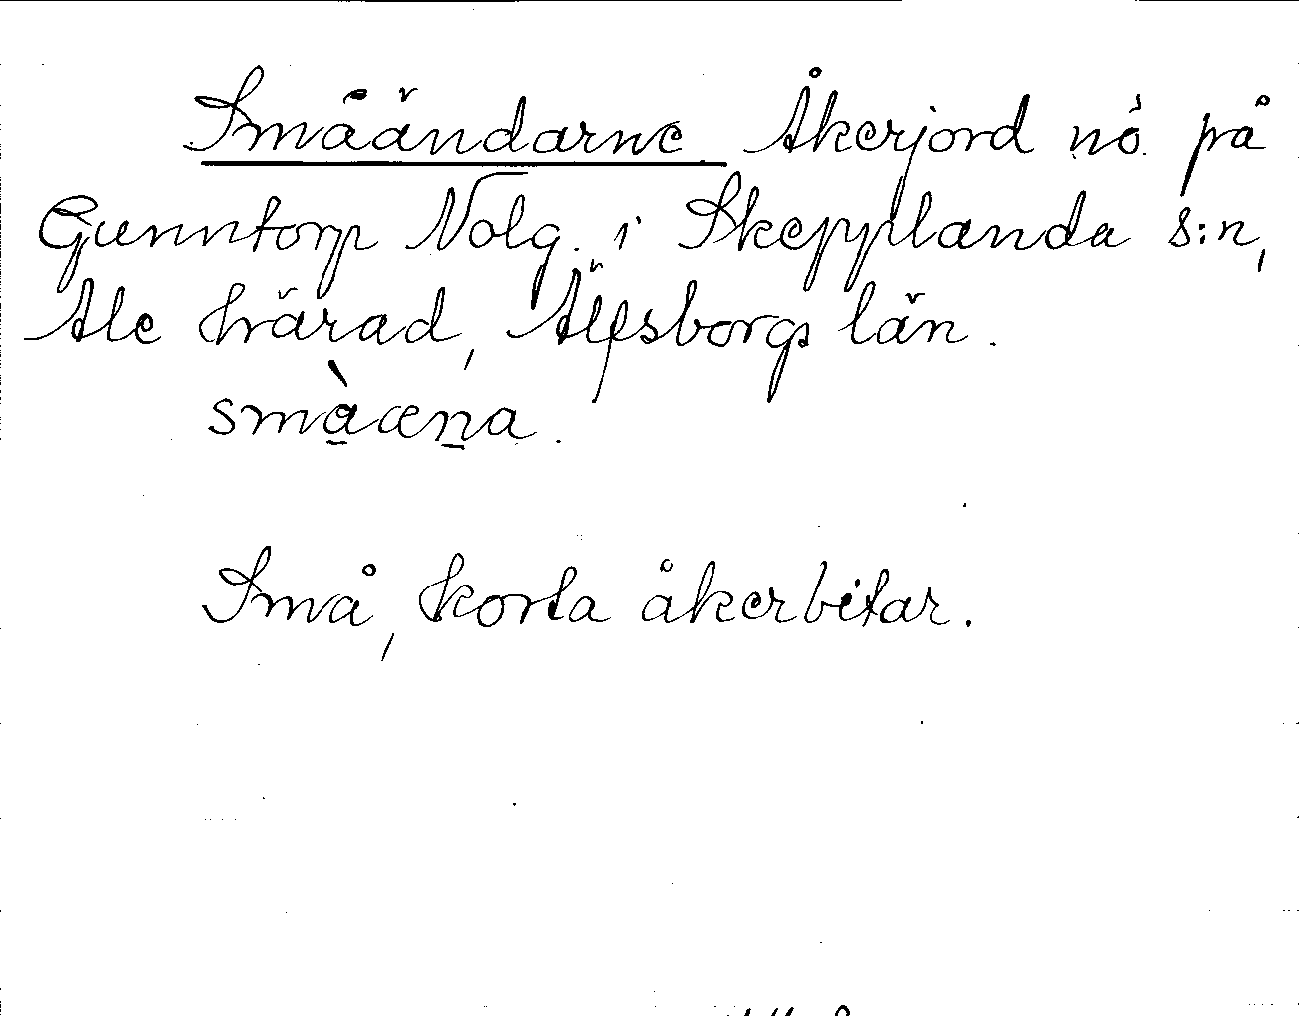 Småändarne. Åkerjord nö. på
Gunntorp Nolg. i Skepplanda s:n,
Ale härad, Älfsborgs län.
småæna.
Små, korta åkerbitar.